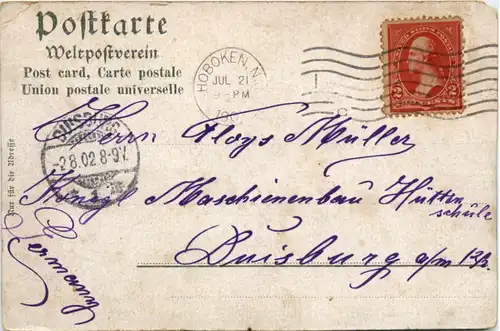 Postkarte
Weltpostverein
Post card, Carte postale
Union postale universelle
HOBOKEN, N.
JUL 21
PM
UNITED STATES
2 CENTS 2
DUISBURG
-2.8.02 8-9V.
Nur für die Adresse
Herrn Aloys Müller
Königl Maschienenbau Hütten
schule
Duisburg a/m Rh.
Germany